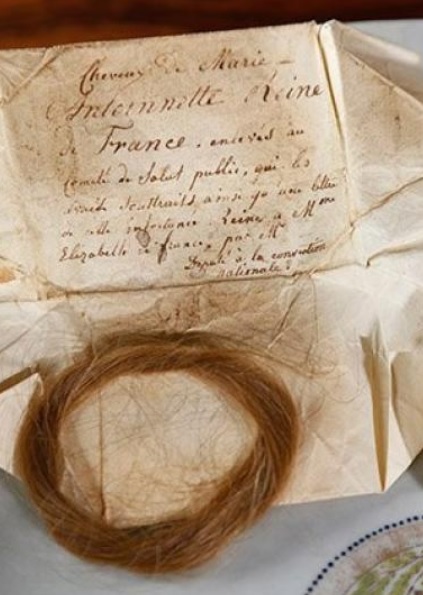 Cheveux de Marie-
Antoinnette Reine
de France, enlevés au
comité de Salut public, qui les
avait soustraits ainsi qu'une lettre
de cette infortunée Reine à Mme
Elizabette de france, par Mr
Député à la convention
nationale.